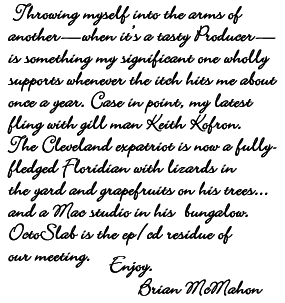 Throwing myself into the arms of
another—when it's a tasty Producer—
is something my significant one wholly
supports whenever the itch hits me about
once a year. Case in point, my latest
fling with gill man Keith Kofron.
The Cleveland expatriot is now a fully-
fledged Floridian with lizards in
the yard and grapefruits on his trees...
and a Mac studio in his bungalow.
OctoSlab is the ep/cd residue of
our meeting.
Enjoy.
Brian McMahon